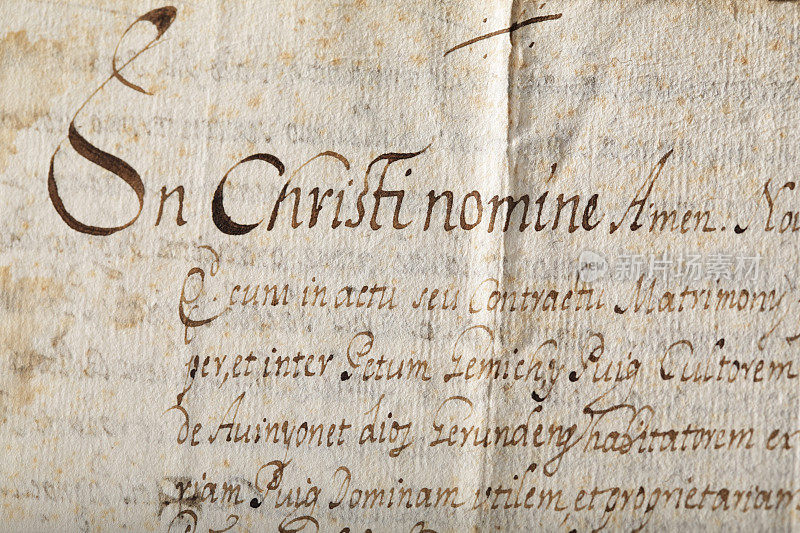 In Christi nomine Amen. Nou
Qd. cum in actu seu Contractu Matrimony
per, et inter Petum Puig Cultorem
de Avinyonet dioz Gerundeny habitatorem ex
riam Puig Dominam utilem, et proprietariam
iStock
新片场素材